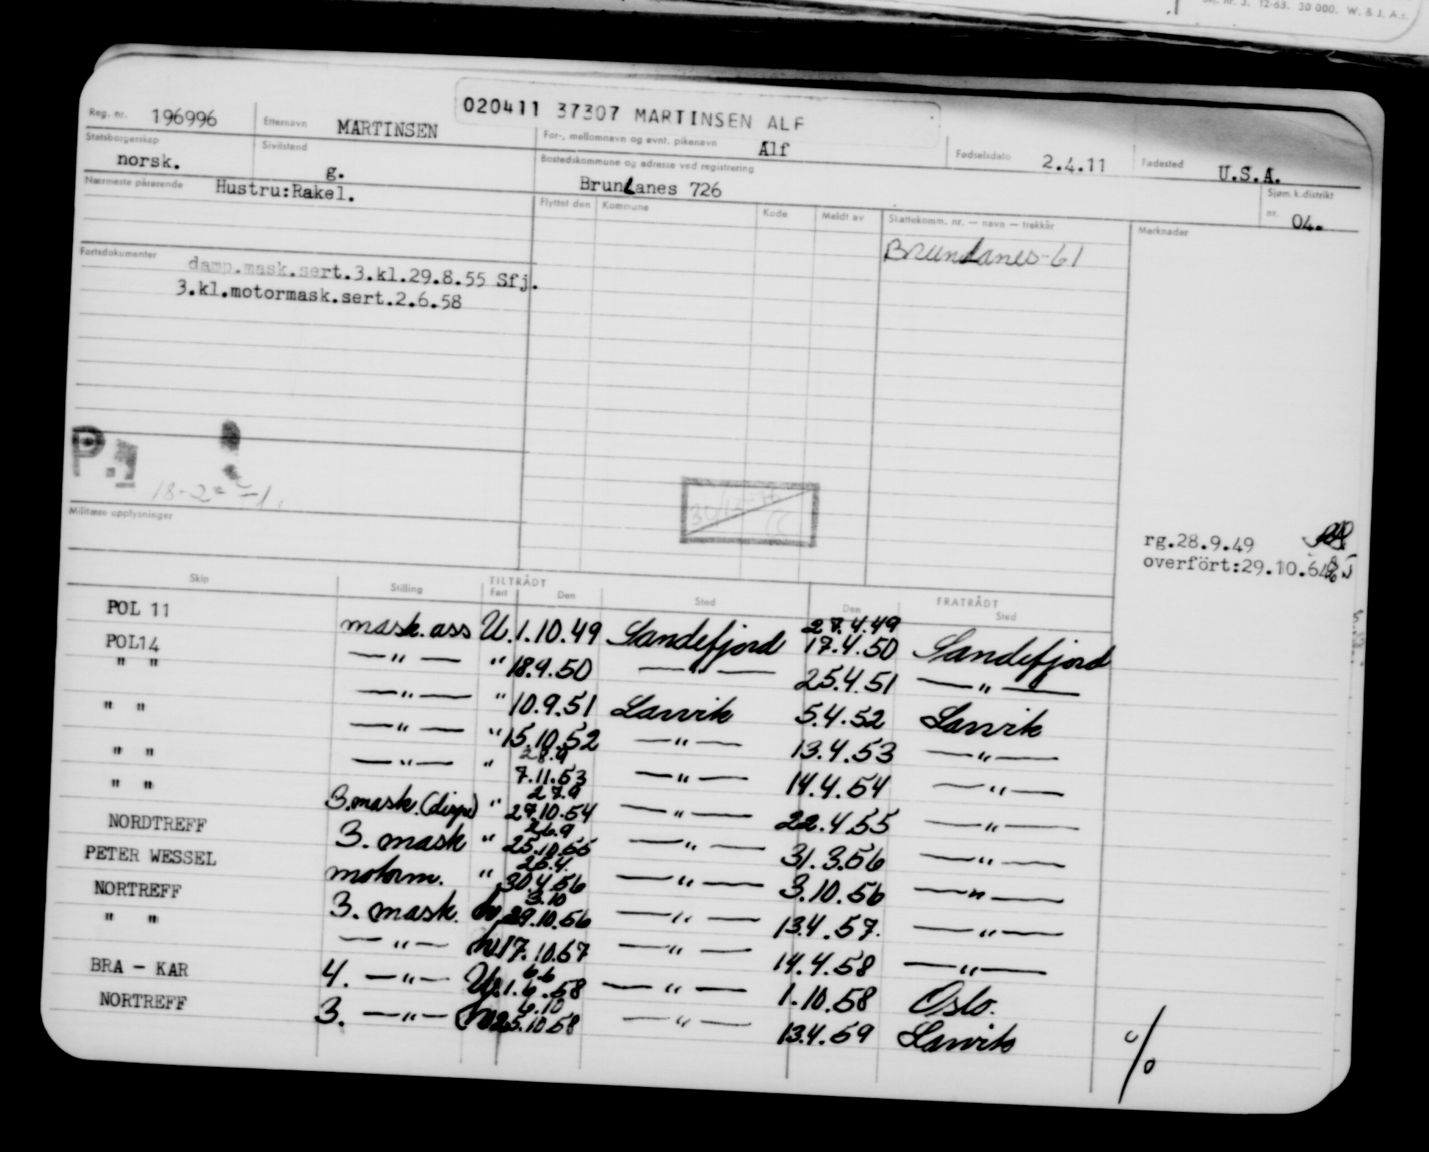 12-63. 30 000. W. & J. A.s.
020411 37307 MARTINSEN ALF
Reg. nr. 196996 Etternavn MARTINSEN For-, mellomnavn og evnt. pikenavn Alf Fødselsdato 2.4.11 Fødested U.S.A.
Statsborgerskap norsk. Sivilstand g. Bostedskommune og adresse ved registrering Brunlanes 726 Sjøm.k.distrikt nr. 04.
Nærmeste pårørende Hustru:Rakel.
Flyttet den Kommune Kode Meldt av Skattekomm. nr. — navn — trekkår Merknader
Brunlanes-61
Fartsdokumenter damp.mask.sert.3.kl.29.8.55 Sfj.
3.kl.motormask.sert.2.6.58
P.
Militære opplysninger
rg.28.9.49
overført:29.10.6
Skip Stilling TILTRÅDT FRATRÅDT
Fart Den Sted Den Sted
27.4.49
POL 11 mask. ass U. 1.10.49 Sandefjord 17.4.50 Sandefjord
POL14 —"— " 18.9.50 —"— 25.4.51 —"—
" " —"— " 10.9.51 Larvik 5.4.52 Larvik
" " —"— " 15.10.52 —"— 13.4.53 —"—
28.9
—"— " 7.11.53 —"— 14.4.54 —"—
27.9
" " 3.mask.(disp) " 29.10.54 —"— 22.4.55 —"—
26.9
" " 3. mask " 25.10.55 —"— 31.3.56 —"—
25.4.
NORDTREFF motorm. " 30.4.56 —"— 3.10.56 —"—
3.10
PETER WESSEL 3. mask. 29.10.56 —"— 13.4.57. —"—
NORTREFF —"— 17.10.57 —"— 14.4.58 —"—
6.6
" " 4. —"— U 21.6.58 —"— 1.10.58 Oslo.
6.10
BRA - KAR 3. —"— 25.10.58 —"— 13.4.59 Larvik
NORTREFF
%